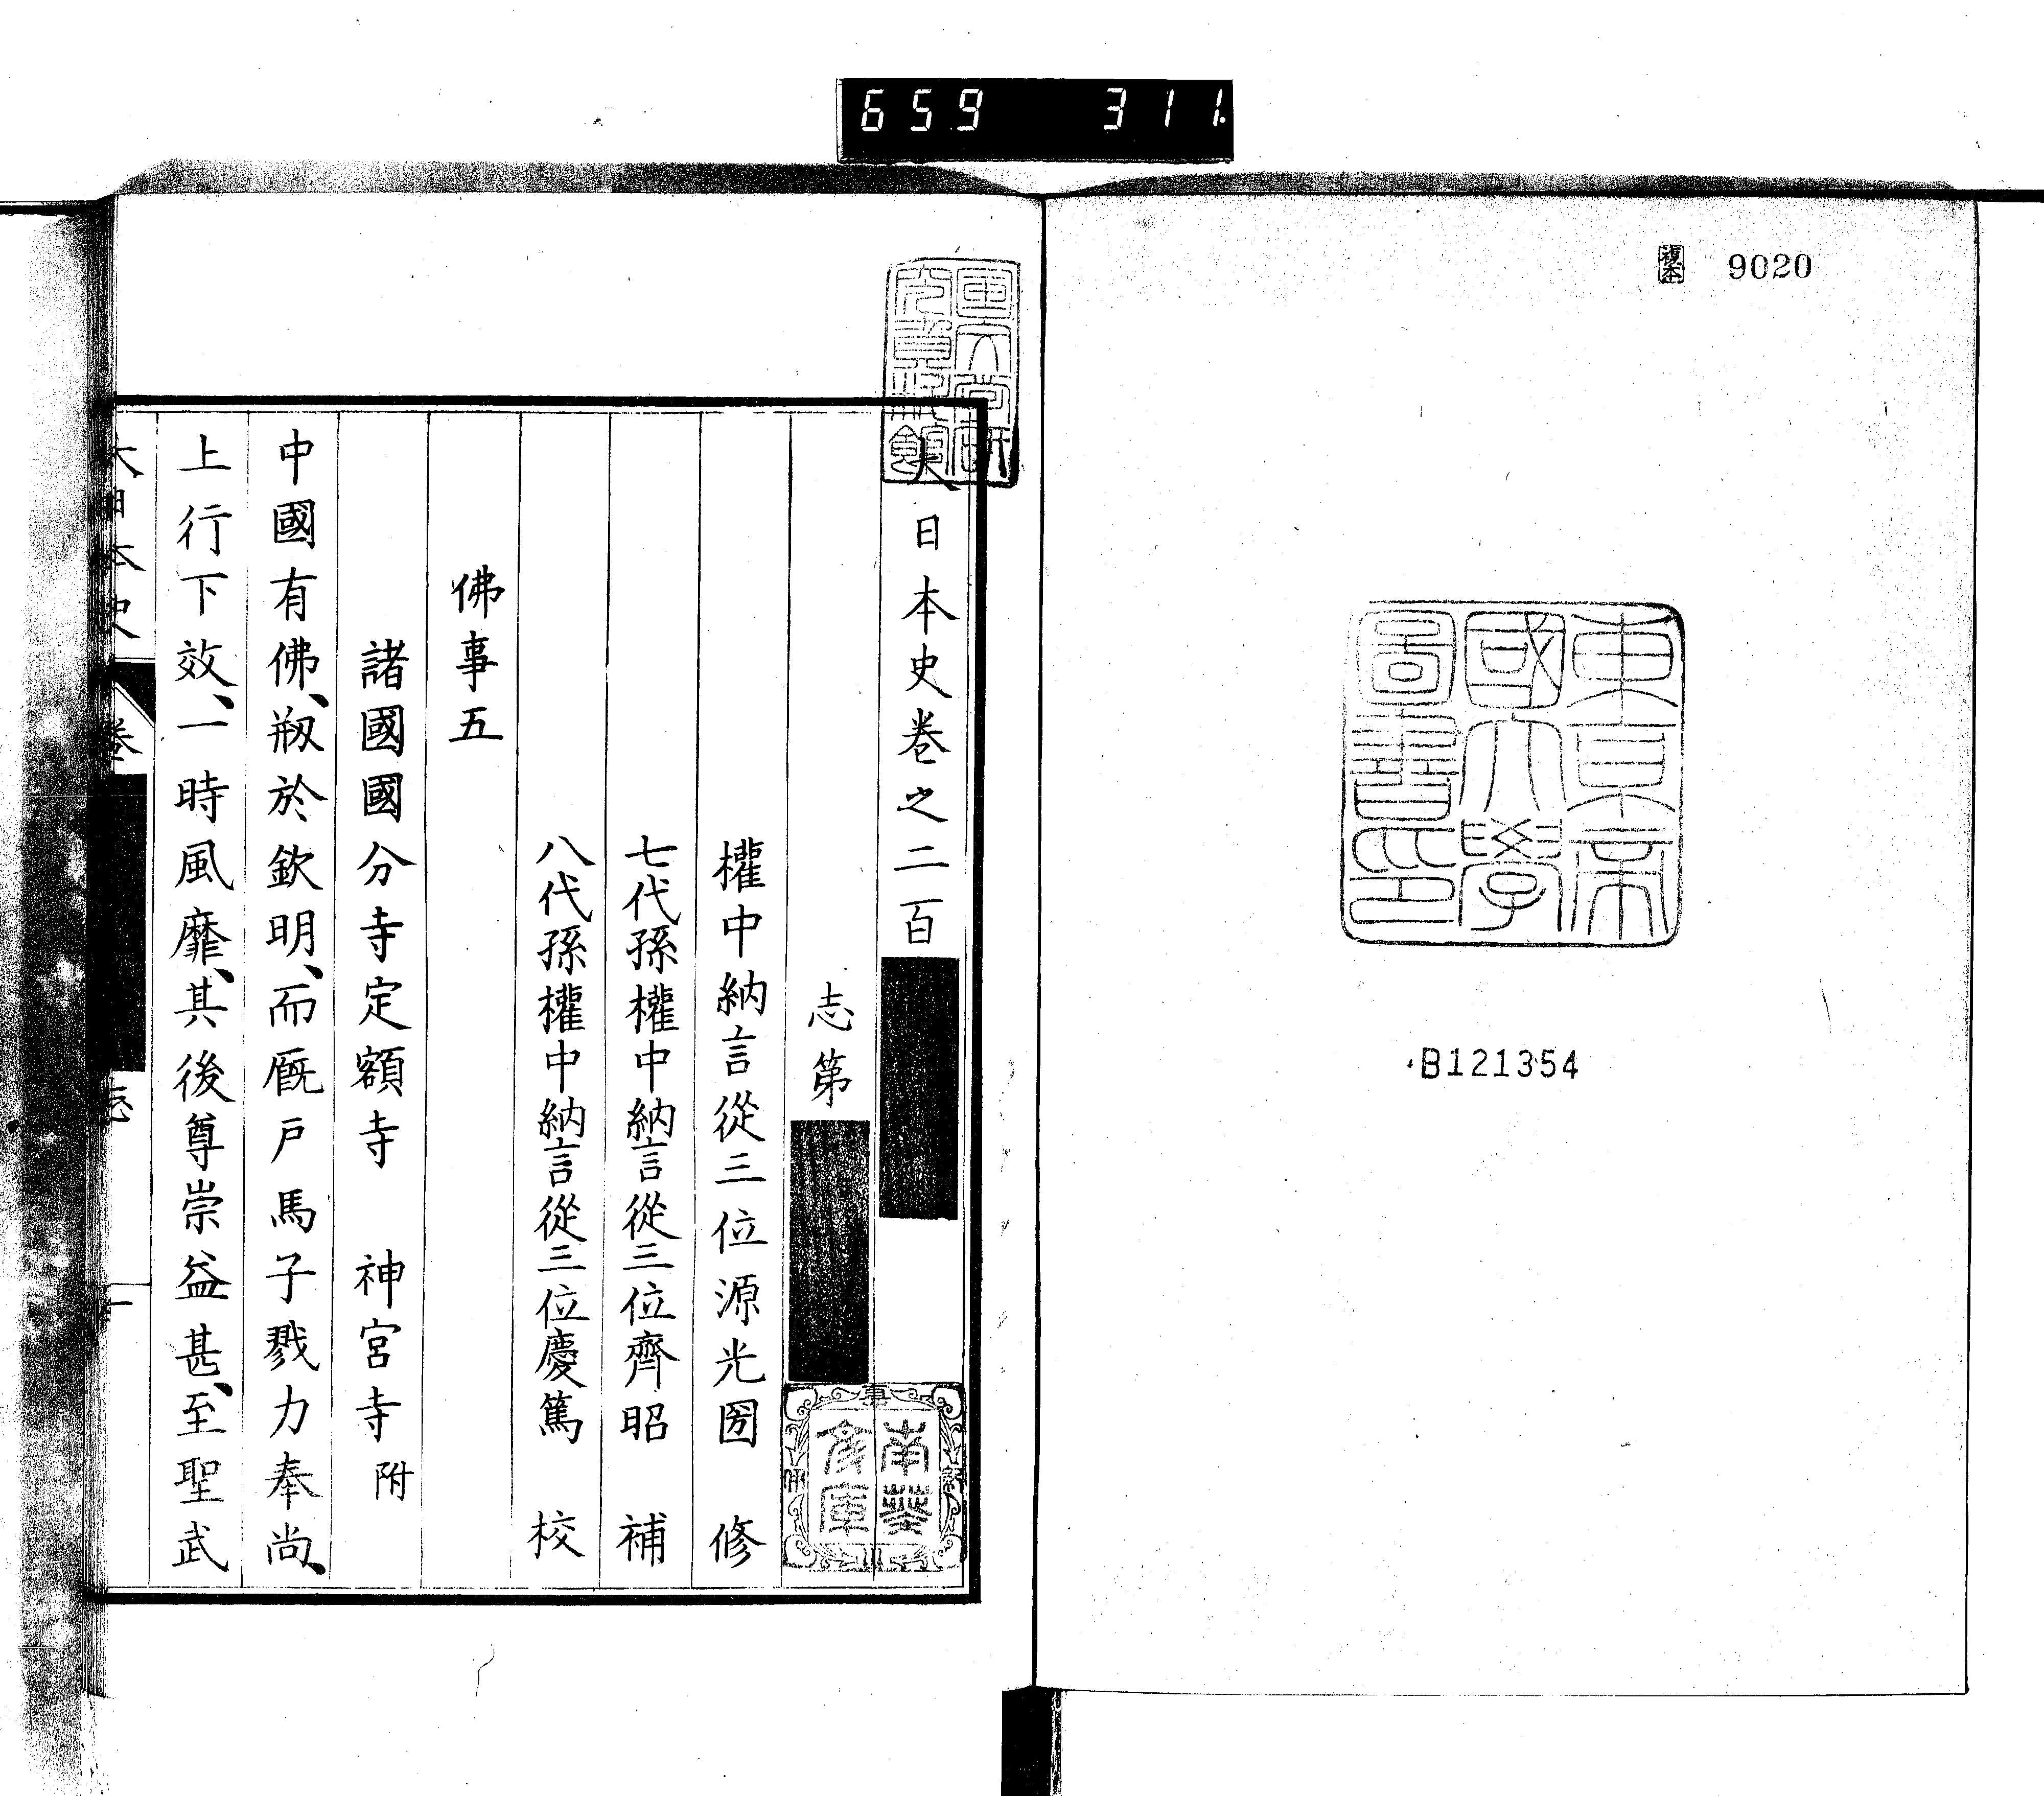 659 311.
複本 9020
東京帝
國大學
圖書印
B121354
大日本史卷之二百
志第
權中納言從三位源光圀 修
七代孫權中納言從三位齊昭 補
八代孫權中納言從三位慶篤 校
佛事五
諸國國分寺定額寺 神宮寺附
中國有佛、刱於欽明、而厩戸馬子戮力奉尚、
上行下效、一時風靡、其後尊崇益甚、至聖武
大日本史 卷 志 一